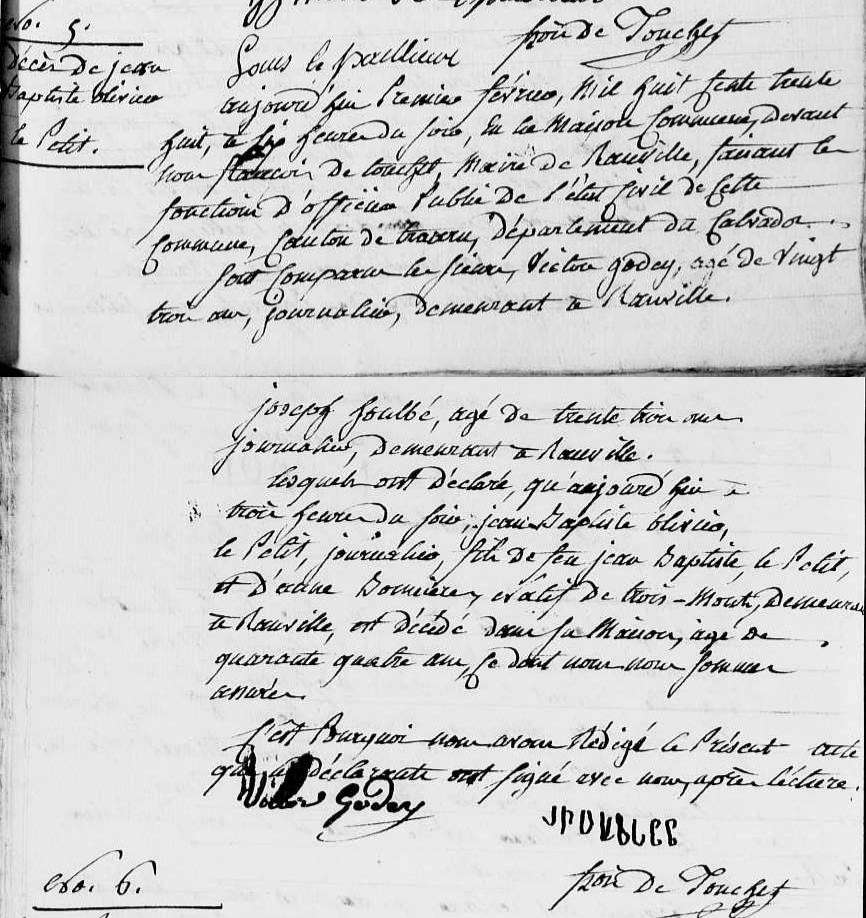 No. 5.
décès de jean
Baptiste olivier
le Petit.
fçois de Touchet
Louis le paillieur
aujourd'hui Premier février, Mil huit cents trente
huit, à six heures du soir, En la Maison Commune, devant
nous françois de touchet, Maire de Ranville, faisant les
fonctions d'officier Public de l'état Civil de Cette
Commune, Canton de troarn, département du Calvados.
Sont Comparus les sieurs, Victor godey, agé de Vingt
trois ans, journalier, demeurant à Ranville.
joseph foulbé, agé de trente trois ans
journalier, demeurant à Ranville.
lesquels ont déclaré, qu'aujourd'hui à
trois heures du soir, jean Baptiste olivier,
le Petit, journalier, fils de feu jean Baptiste, le Petit,
et d'anne natif de trois-Monts, demeurant
à Ranville, est décédé dans sa Maison, agé de
quarante quatre ans, Ce dont nous nous sommes
assurés.
C'est Pourquoi nous avons Rédigé le Présent acte
que les déclarants ont signé avec nous, après lécture.
Victor Godey
fçois De Touchet
No. 6.